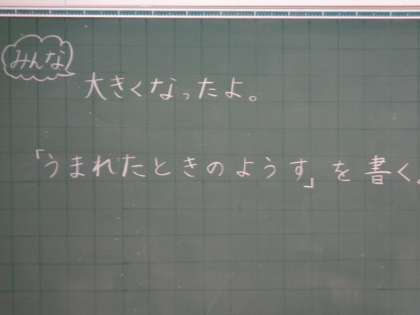 みんな
大きくなったよ。
「うまれたときのようす」を書く。